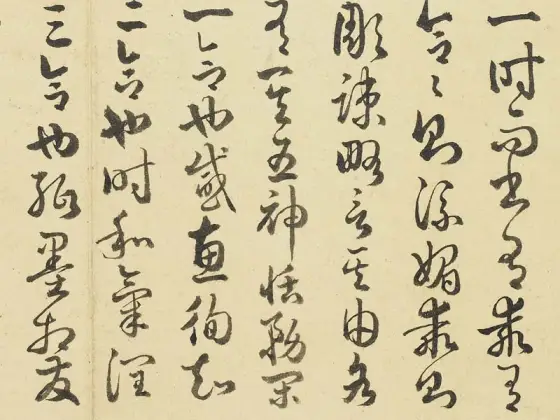 一時而書有乖有
合合則流媚乖則
彫疎略言其由各
有其五神怡務閑
一合也感惠徇知
二合也時和氣潤
三合也紙墨相發